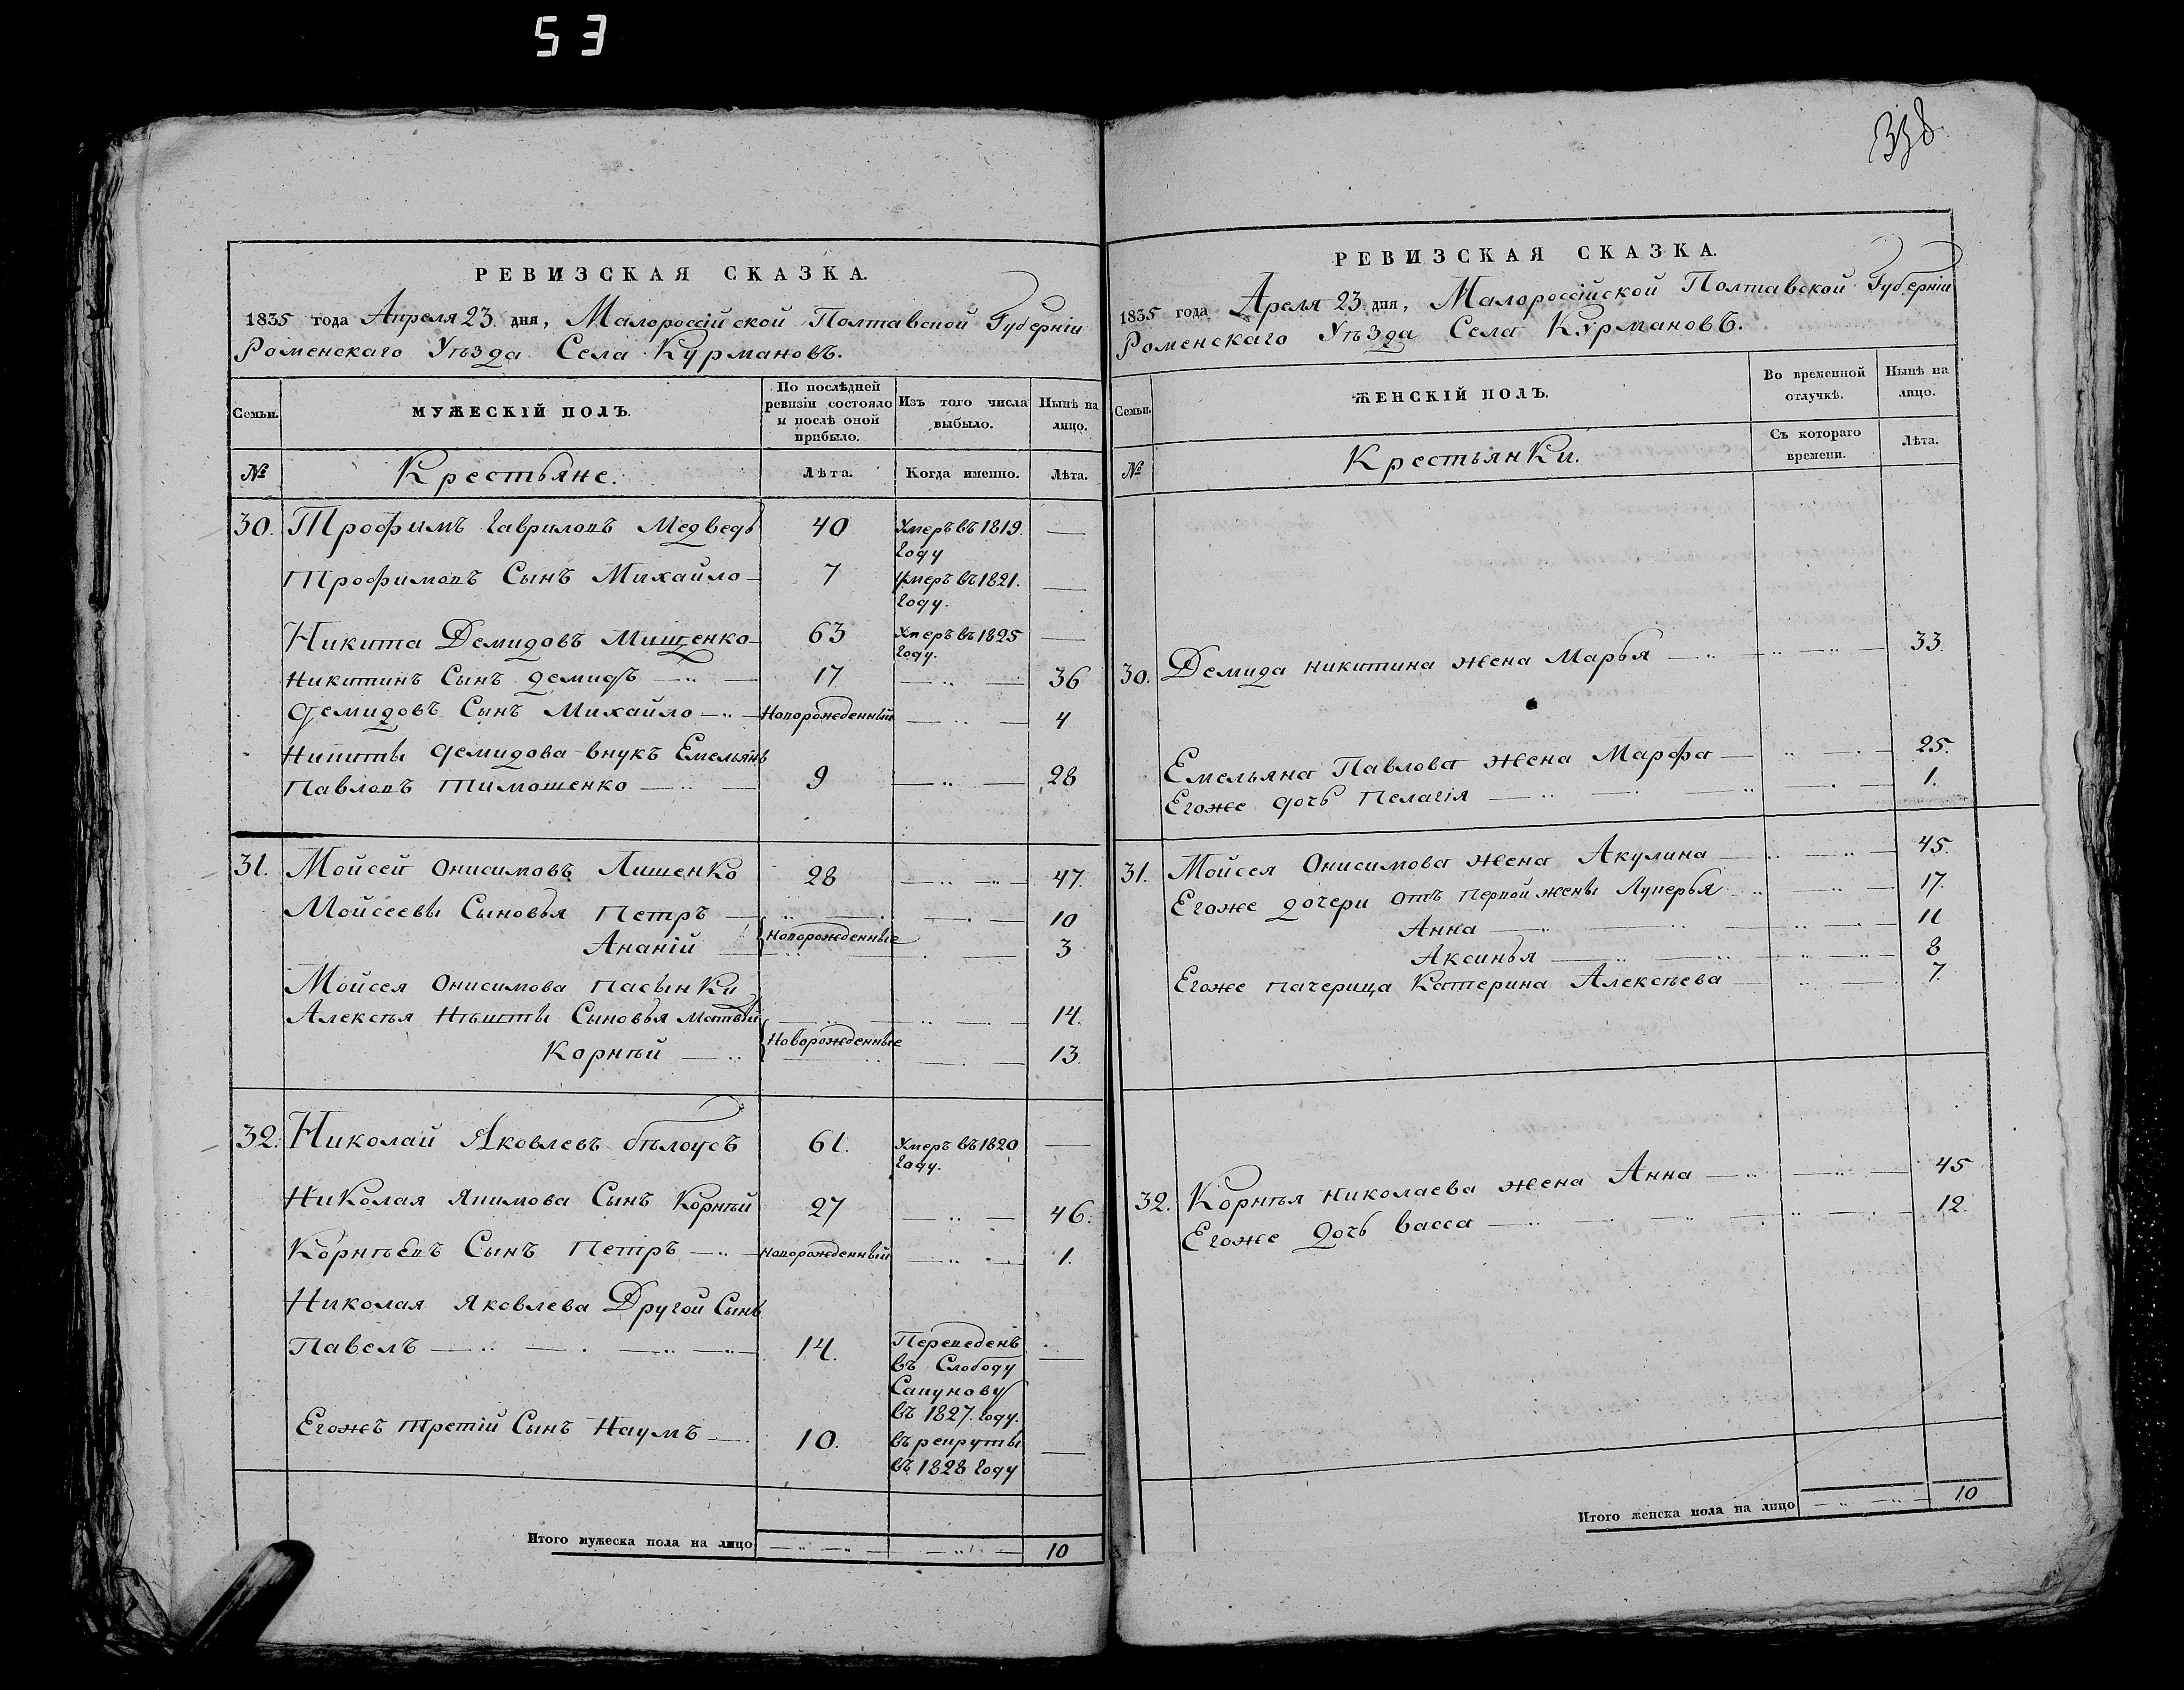 53
338
РЕВИЗСКАЯ СКАЗКА.
1835 года Апреля 23. дня, Малороссійской Полтавской Губерніи
Роменскаго Уѣзда Села Курмановъ.
Семьи.
МУЖЕСКІЙ ПОЛЪ.
По послѣдней
ревизіи состояло
и послѣ оной
прибыло.
Изъ того числа
выбыло.
Нынѣ на
лицо.
№
Крестьяне.
Лѣта.
Когда именно.
Лѣта.
30. Трофимъ Гавриловъ Медведь 40 Умеръ въ 1819. —
году
Трофимовъ Сынъ Михайло — 7 Умеръ въ 1821. —
году.
Никита Демидовъ Мищенко — 63 Умеръ въ 1825 —
году.
Никитинъ Сынъ Демидъ — 17 — 36
Демидовъ Сынъ Михайло — Новорожденный — 4
Никиты Демидова внукъ Емельянъ
Павловъ Тимошенко — 9 — 28
31. Мойсей Онисимовъ Лишенко 28 — 47.
Мойсеевы Сыновья Петръ — 10
Новорожденные
Ананій — 3
Мойсея Онисимова пасынки
Алексѣя Сыновья Матвѣй — 14.
Новорожденные
Корнѣй — 13.
32. Николай Яковлевъ бѣлоусъ 61. Умеръ въ 1820 —
году.
Николая Якимова Сынъ Корнѣй 27 — 46.
Корнѣевъ Сынъ Петръ — Новорожденный — 1.
Николая Яковлева Другой Сынъ
Павелъ — 14. Переведенъ —
въ Слободу
Сапунову
въ 1827. году.
Егожъ третій Сынъ Наумъ — 10. въ рекруты —
въ 1828 году
Итого мужеска пола на лицо — 10
РЕВИЗСКАЯ СКАЗКА.
1835 года Ареля 23. дня, Малороссійской Полтавской Губерніи
Роменскаго Уѣзда Села Курмановъ.
Семьи.
ЖЕНСКІЙ ПОЛЪ.
Во временной
отлучкѣ.
Нынѣ на
лицо.
№
Крестьянки.
Съ котораго
времени.
Лѣта.
30. Демида Никитина жена Марья — 33.
Емельяна Павлова жена Марфа — 25.
Егоже дочь Пелагія — 1.
31. Мойсея Онисимова жена Акулина — 45.
Егоже дочери отъ первой жены Лукерья — 17.
Анна — 11
Аксинья — 8
Егоже пачерица Катерина Алексѣева — 7.
32. Корнѣя Николаева жена Анна — 45
Егоже дочь васса — 12.
Итого женска пола на лицо — 10